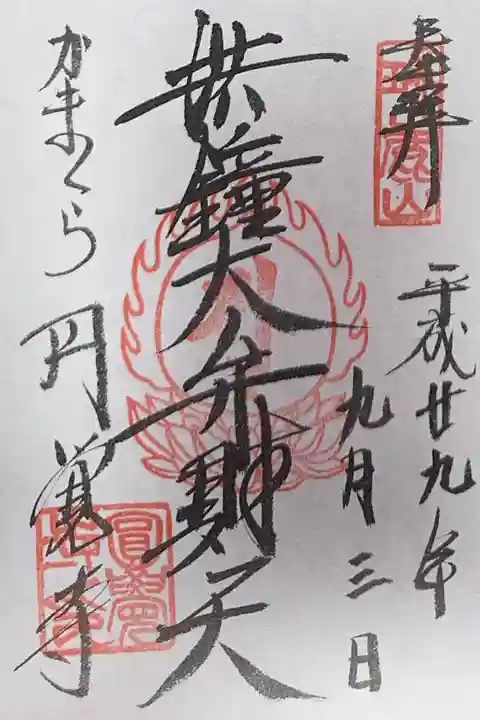 奉拝
平成廿九年
九月三日
洪鐘大弁財天
かまくら 円覚寺